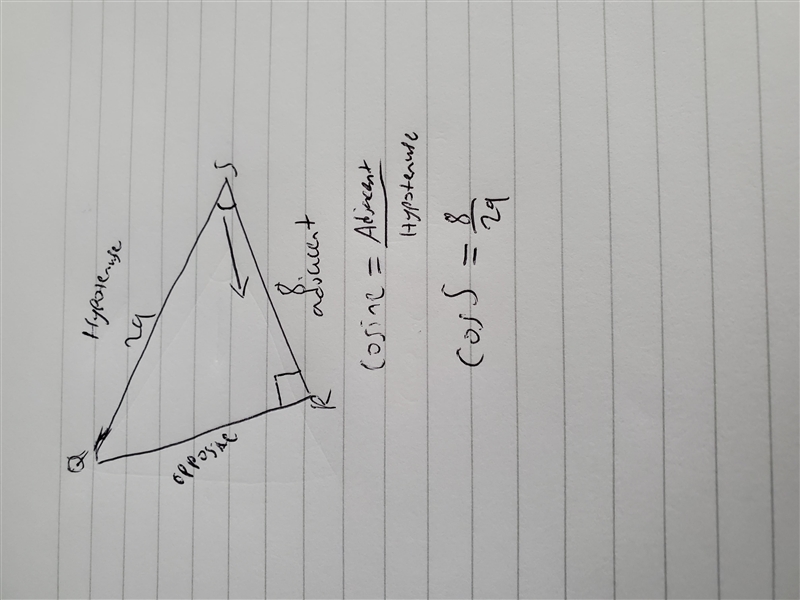 Q
Hypotenuse
29
S
8
adjacent
R
opposite
Cosine = Adjacent
Hypotenuse
Cos S = 8
29